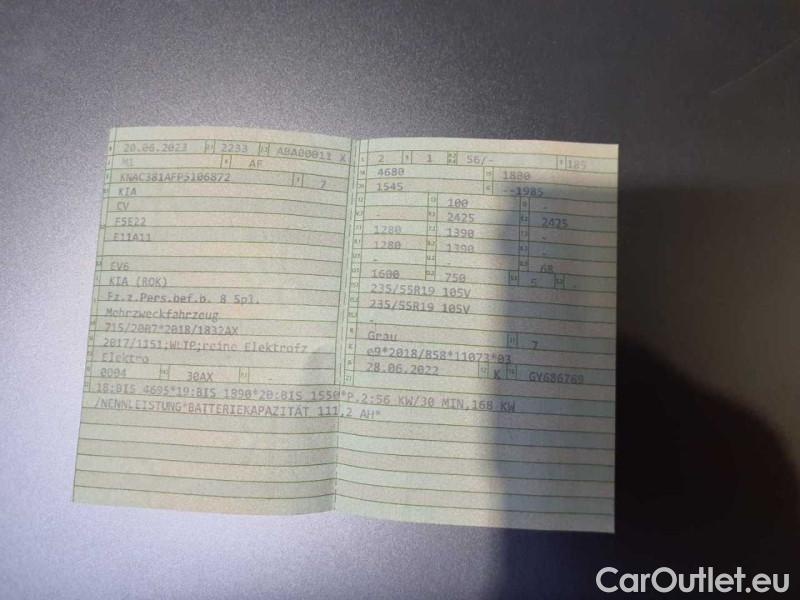 20.06.2023 2233 ABA00011 X
M1 AF
KNAC381AFP5106872 7
KIA
CV
F5E22
E11A11
EV6
KIA (ROK)
Fz.z.Pers.bef.b. 8 Spl.
Mehrzweckfahrzeug
715/2007*2018/1832AX
2017/1151;WLTP;reine Elektrofz
Elektro
0004 30AX -
2 1 56/- 185
4680 1880
1545 --1985
- 100 -
- 2425 2425
1280 1390 -
1280 1390 -
- - 68
1600 750 5 -
235/55R19 105V
235/55R19 105V
-
Grau 7
e9*2018/858*11073*03
28.06.2022 K GY686769
18:BIS 4695*19:BIS 1890*20:BIS 1550*P.2:56 KW/30 MIN,168 KW
/NENNLEISTUNG*BATTERIEKAPAZITÄT 111,2 AH*
CarOutlet.eu